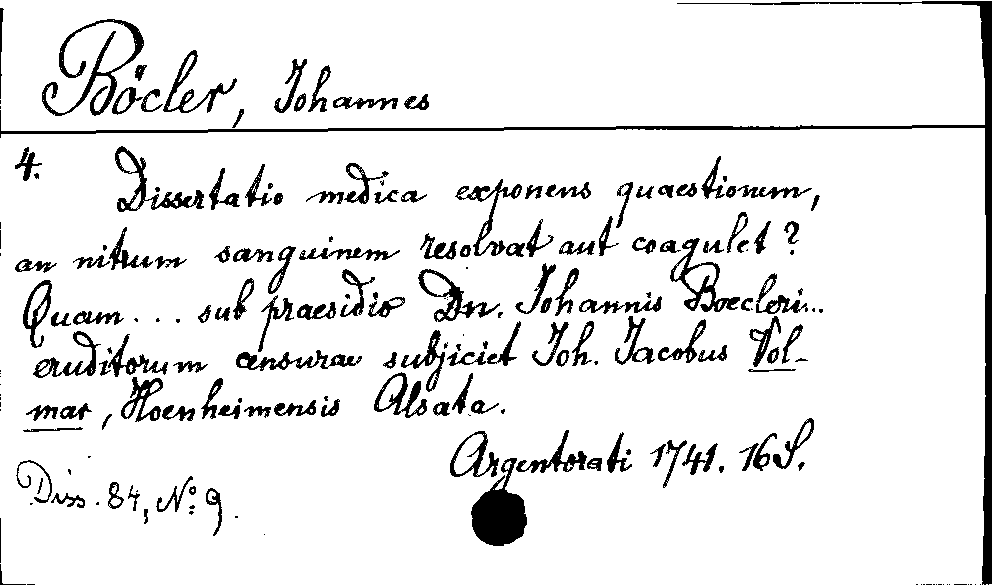 Böcler, Johannes
4.
Dissertatio medica exponens quaestionem,
an nitrum sanguinem resolvat aut coagulet?
Quam... sub praesidio Dn. Johannis Boecleri...
eruditorum censurae subjiciet Joh. Jacobus Vol-
mar, Hoenheimensis Alsata.
Argentorati 1741. 16 S.
Diss. 84, No: 9.